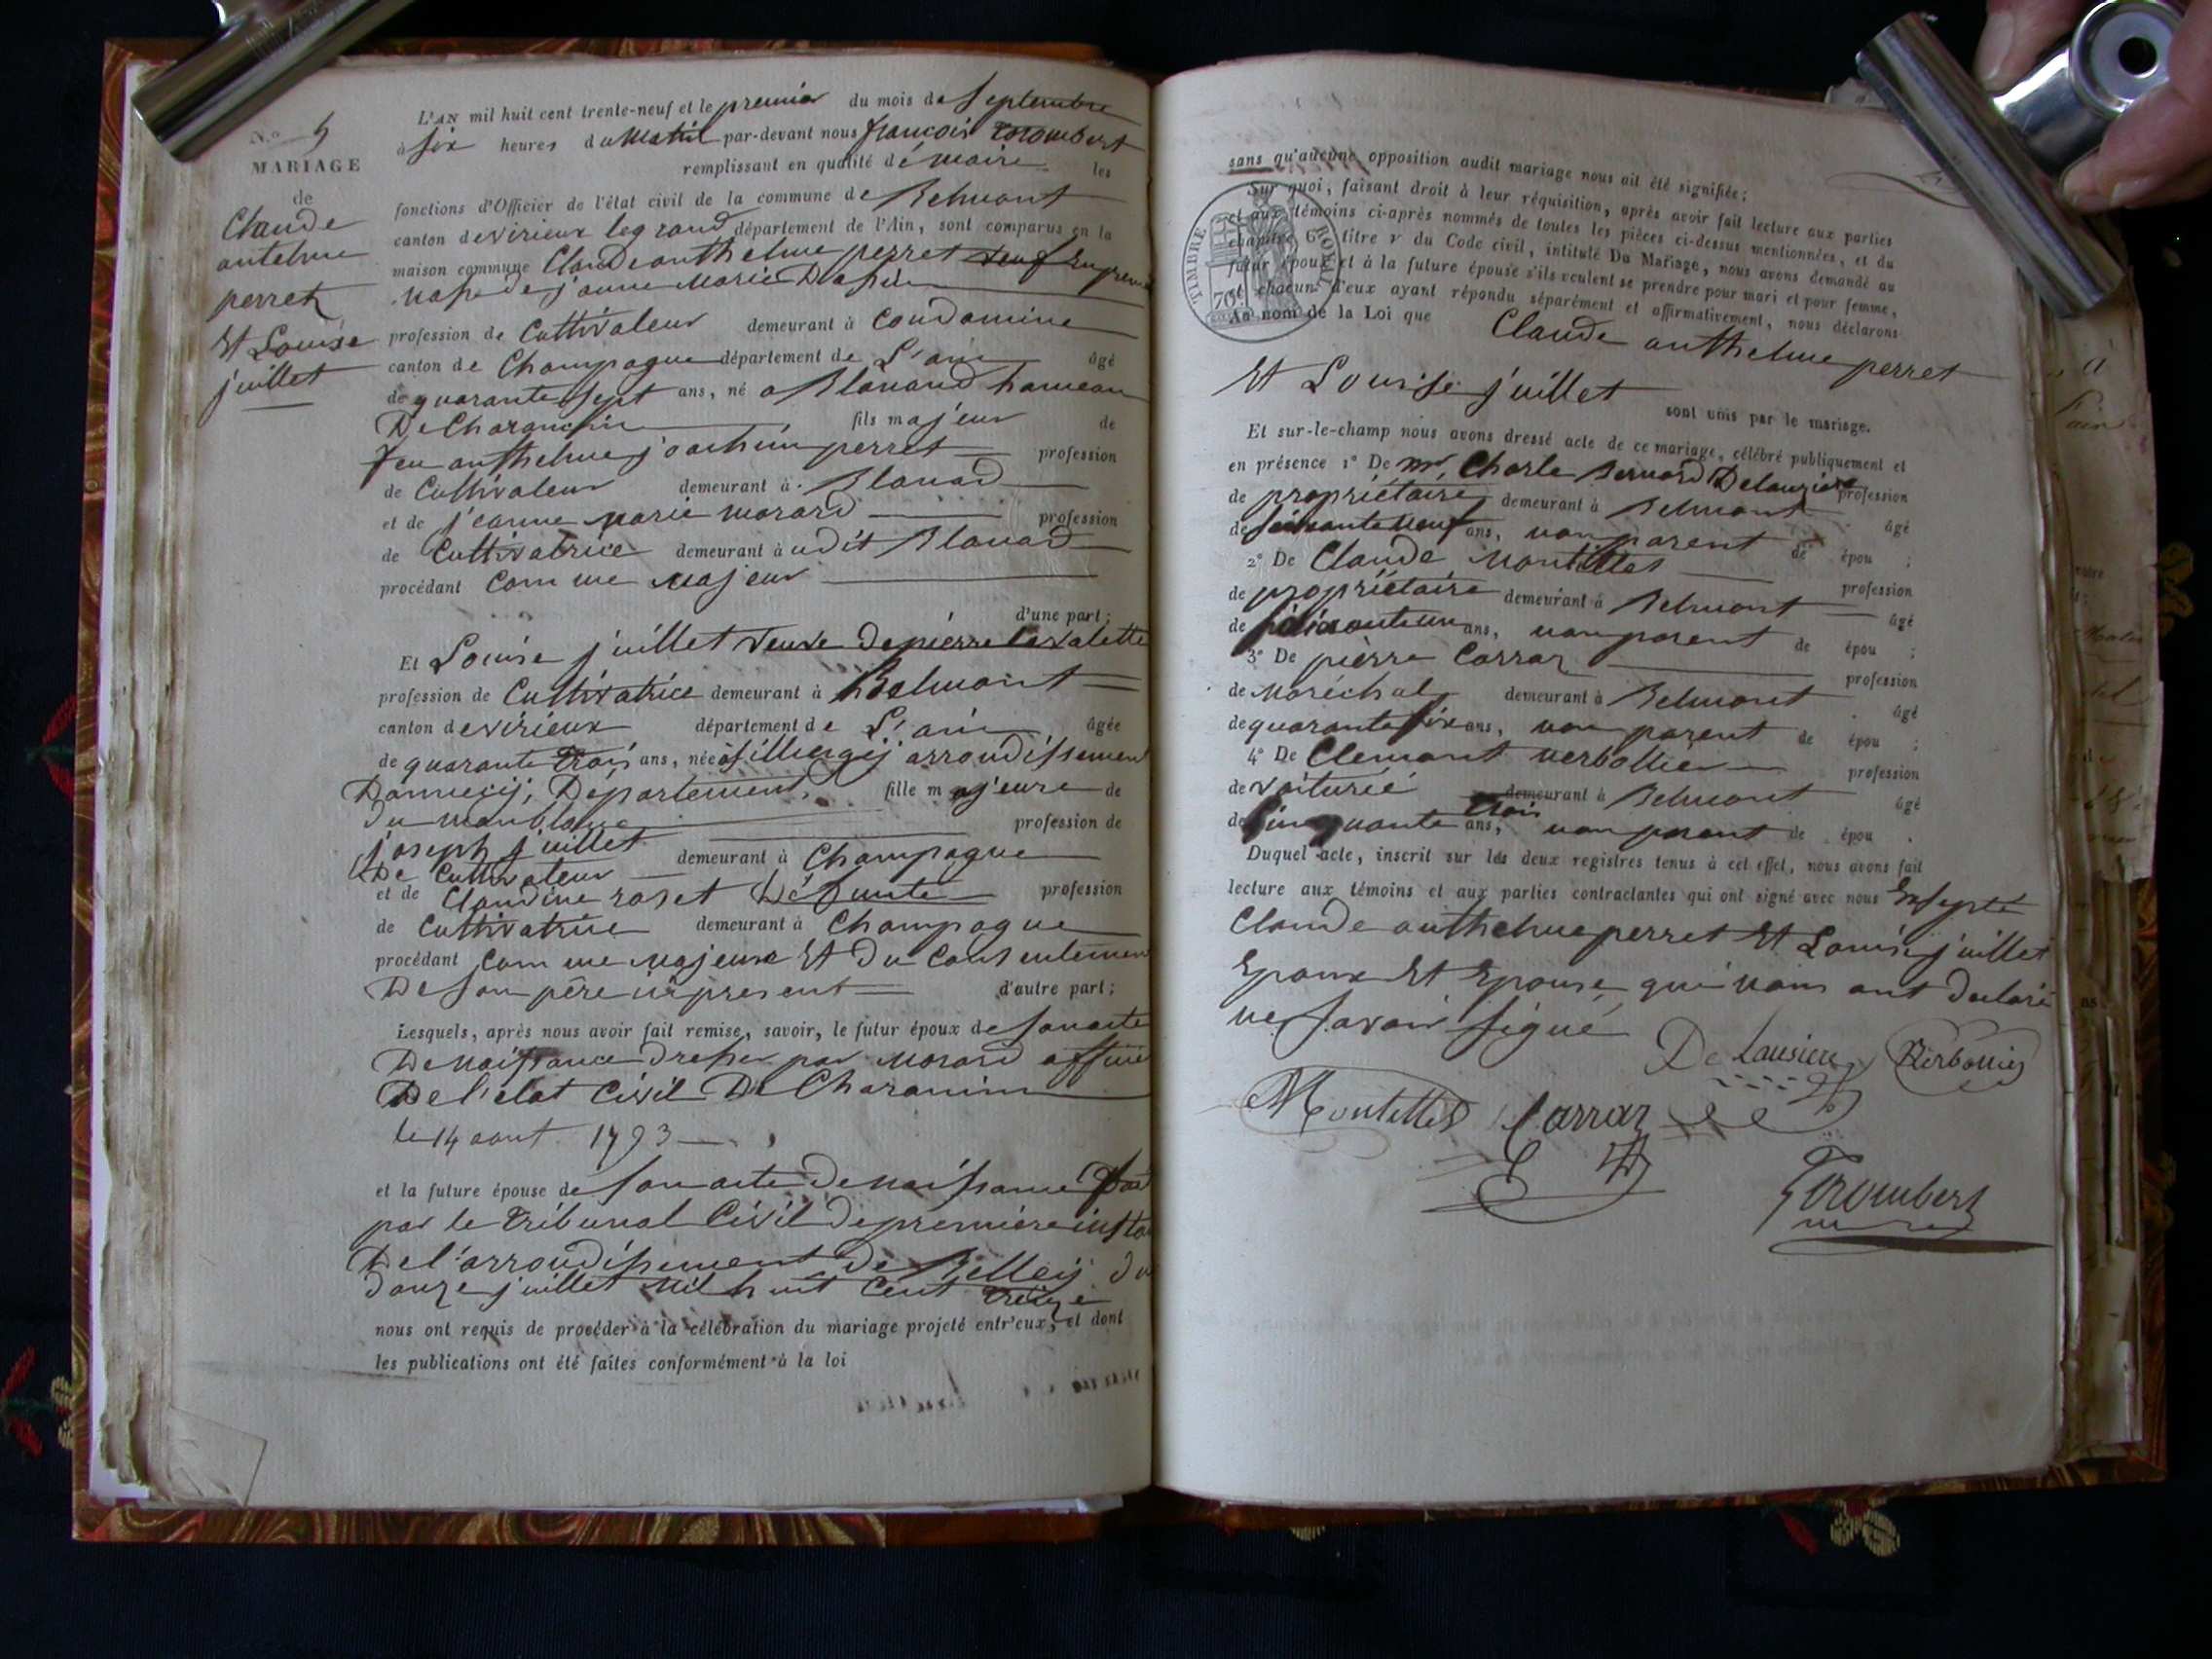 N.o 5
MARIAGE
de
Claude
antelme
perret
Et Louise
juillet
L'AN mil huit cent trente-neuf et le premier du mois de Septembre
à Six heures du Matin par-devant nous françois trombert
remplissant en qualité de maire les
fonctions d'Officier de l'état civil de la commune de Belmont
canton de virieux le grand département de l'Ain, sont comparus en la
maison commune Claude anthelme perret veuf En premi
Nosse de jeanne Marie
profession de Cultivateur demeurant à Condamine
canton de Champagne département de L'ain âgé
de quarante Sept ans, né a Blanaud hameau
De Charancin fils majeur de
feu anthelme joachim perret profession
de Cultivateur demeurant à Blanad
et de jeanne marie morard profession
de Cultivatrice demeurant à udit Blanad
procédant Comme Majeur
d'une part;
Et Louise juillet veuve de pierre Lavalette
profession de Cultivatrice demeurant à Belmont
canton de virieux département de L'ain âgée
de quarante trois ans, née à Silliengij arrondissement
Dannecij, Département fille majeure de
du monblanc
joseph juillet profession de
De Cultivateur demeurant à Champagne
et de Claudine roset Défunte profession
de Cultivatrice demeurant à Champagne
procédant Comme Majeure Et du Consentement
De Son père ici présent d'autre part;
Lesquels, après nous avoir fait remise, savoir, le futur époux de Son acte
De Naissance dresser par Morard officie
De l'état Civil De Charancin
le 14 aout 1793
et la future épouse de Son acte de Naissance
par le tribunal Civil de première insta
De l'arrondissement de Belleij du
douze juillet Mil huit Cent treize
nous ont requis de procéder à la célébration du mariage projeté entr'eux, et dont
les publications ont été faites conformément à la loi
sans qu'aucune opposition audit mariage nous ait été signifiée;
Sur quoi, faisant droit à leur réquisition, après avoir fait lecture aux parties
et aux témoins ci-après nommés de toutes les pièces ci-dessus mentionnées, et du
chapitre 6, titre v du Code civil, intitulé Du Mariage, nous avons demandé au
futur époux et à la future épouse s'ils veulent se prendre pour mari et pour femme,
et chacun d'eux ayant répondu séparément et affirmativement, nous déclarons
Au nom de la Loi que Claude anthelme perret
Et Louise juillet
sont unis par le mariage.
TIMBRE ROYAL
70
Et sur-le-champ nous avons dressé acte de ce mariage, célébré publiquement et
en présence 1° De mr, Charle Bernard Delauziere profession
de propriétaire demeurant à Belmont âgé
de Soixante neuf ans, non parent de épou ;
2° De Claude Montillet profession
de propriétaire demeurant à Belmont âgé
de ans, non parent de épou ;
3° De pierre Carraz profession
de Maréchal demeurant à Belmont âgé
de quarante Six ans, non parent de épou ;
4° De Clemant verbollier profession
de voiturié demeurant à Belmont âgé
de Cinquante trois ans, non parent de épou .
Duquel acte, inscrit sur les deux registres tenus à cet effet, nous avons fait
lecture aux témoins et aux parties contractantes qui ont signé avec nous Excepté
Claude anthelme perret Et Louise juillet
Epoux Et Epouse, qui nous ont déclaré
ne Savoir Signé
De Lausiere Verbollier
Montillet Carraz
Trombert